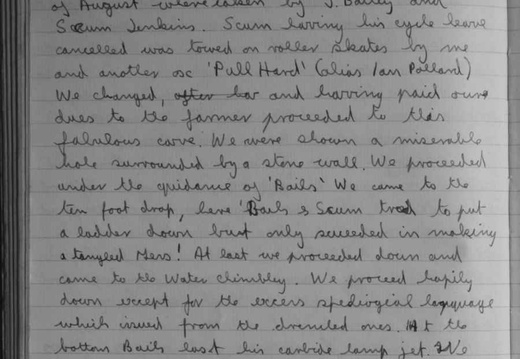 of August were taken by J. Bailey and
Scum Jenkins. Scum having his cycle leave
cancelled was towed on roller skates by me
and another osc 'Pull Hard' (alias Ian Pollard)
We changed, after hav and having paid our
dues to the farmer proceeded to this
fabulous cave. We were shown a miserable
hole surrounded by a stone wall. We proceeded
under the guidance of 'Bails' We came to the
ten foot drop, here 'Bails & Scum tried to put
a ladder down but only suceeded in making
a tangled Mess! At last we proceeded down and
came to the Water Chimbley. We proceed hapily
down except for the excess spediogical language
which issued from the drenched ones. At the
bottom Bails lost his carbide lamp jet. We